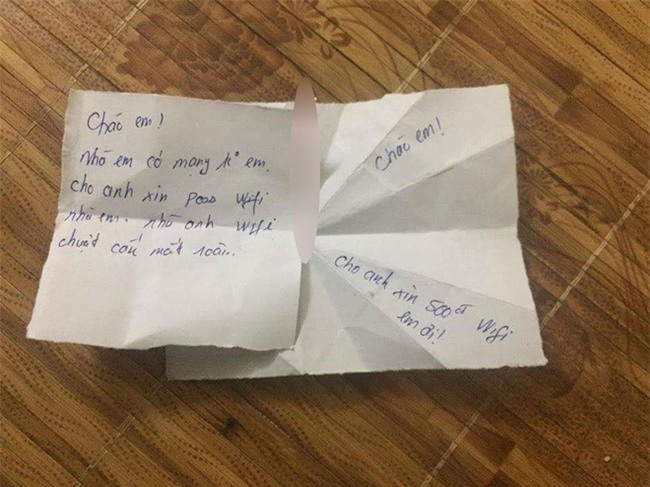 Chào em!
Nhà em có mạng k° em.
cho anh xin pass Wifi
nhà em. nhà anh Wifi
chuột cắn mất rồi..
Chào em!
cho anh xin 500đ Wifi
em ơi!